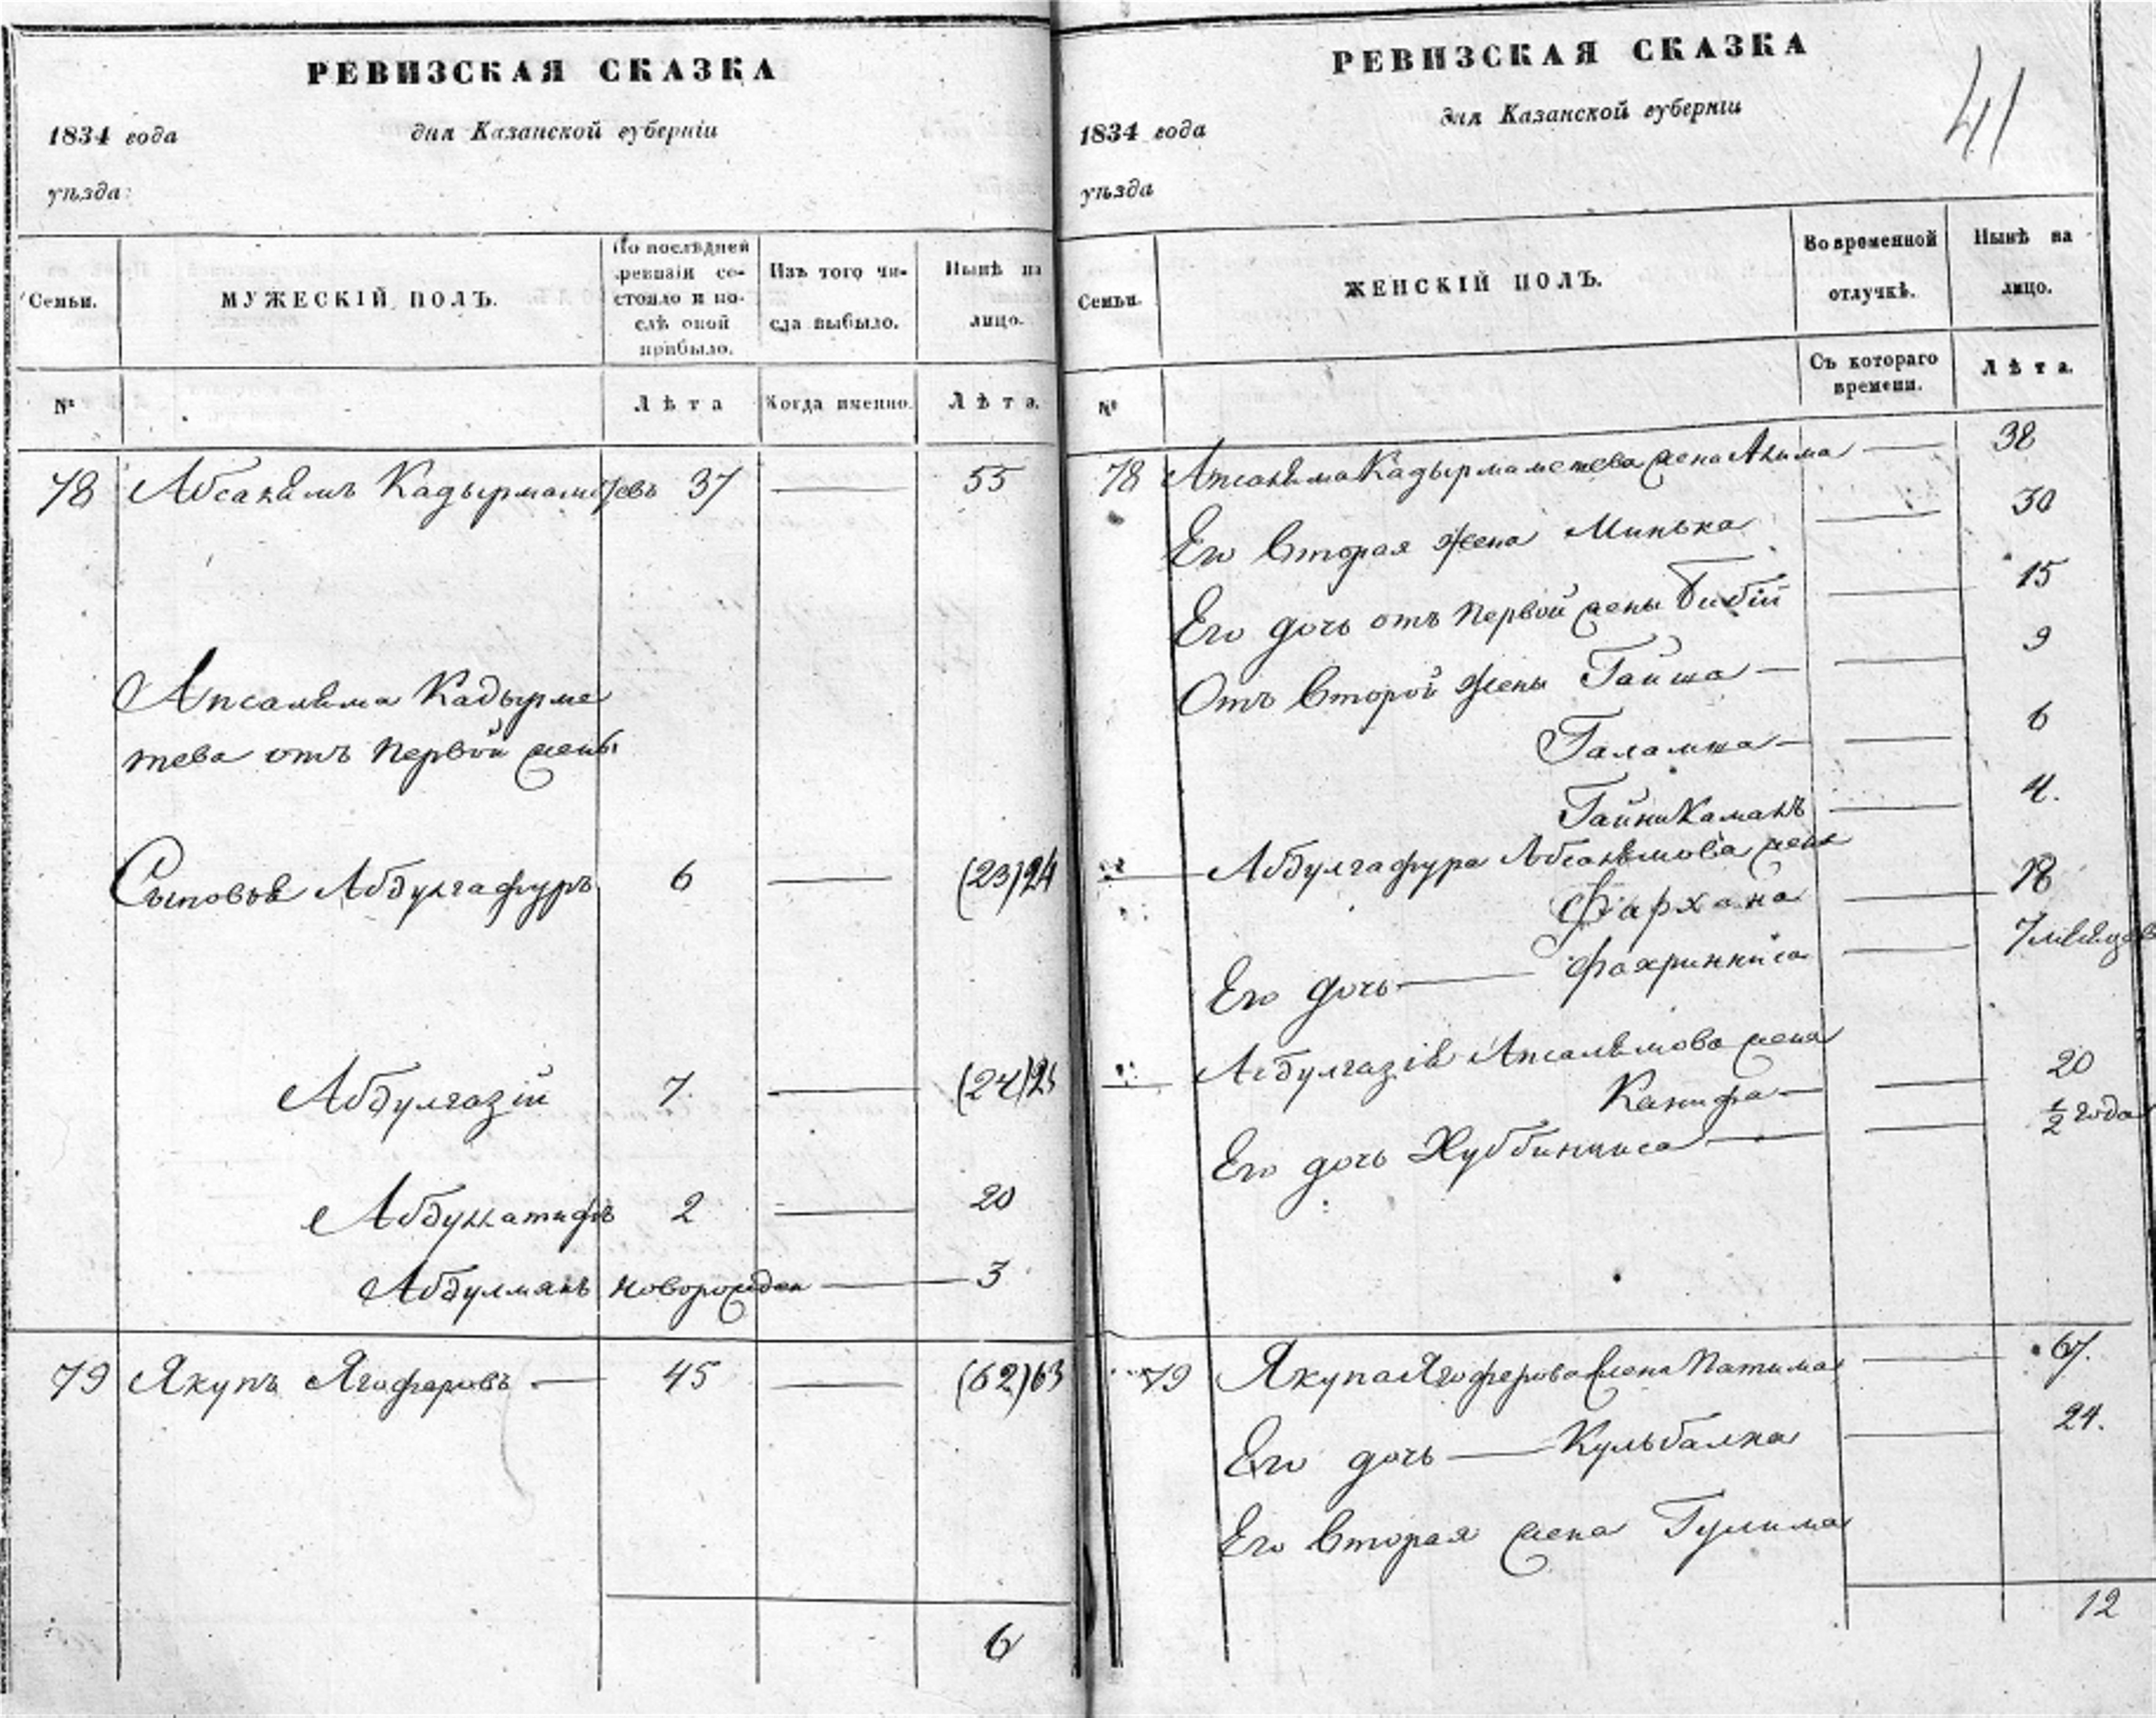 РЕВИЗСКАЯ СКАЗКА
1834 года для Казанской губерніи
уѣзда:
Семьи. МУЖЕСКІЙ ПОЛЪ. По послѣдней ревизіи состояло и послѣ оной прибыло. Изъ того числа выбыло. Нынѣ на лицо.
№ Лѣта Когда именно. Лѣта.
78 Абсалямъ Кадырмаметевъ 37 — 55
Апсаляма Кадырме
тева отъ первой жены
Сыновья Абдулгафуръ 6 — (23)24
Абдулгазій 7. — (24)25
Абдуллатифъ 2 — 20
Абдулмянъ новорожден — 3
79 Якупъ Ягоферовъ — 45 — (62)63
6
РЕВИЗСКАЯ СКАЗКА
41
1834 года для Казанской губерніи
уѣзда
Семьи. ЖЕНСКІЙ ПОЛЪ. Во временной отлучкѣ. Нынѣ на лицо.
№ Съ котораго времени. Лѣта.
78 Апсаляма Кадырмаметева жена Алима — 38
Его вторая жена Минька — 30
Его дочь отъ первой жены Бибій — 15
Отъ второй жены Гайша — 9
Галамша — 6
Гайникамалъ — 4.
Абдулгафура Абсалямова жена
Фархана — 18
Его дочь — Фахринниса — 7 месяцов
Абдулгазія Апсалямова жена
Канифа — 20
Его дочь Хуббинниса — ½ года
79 Якупа Ягоферова жена Патима — 67.
Его дочь — Кульбалка — 24.
Его вторая жена Гулима
12